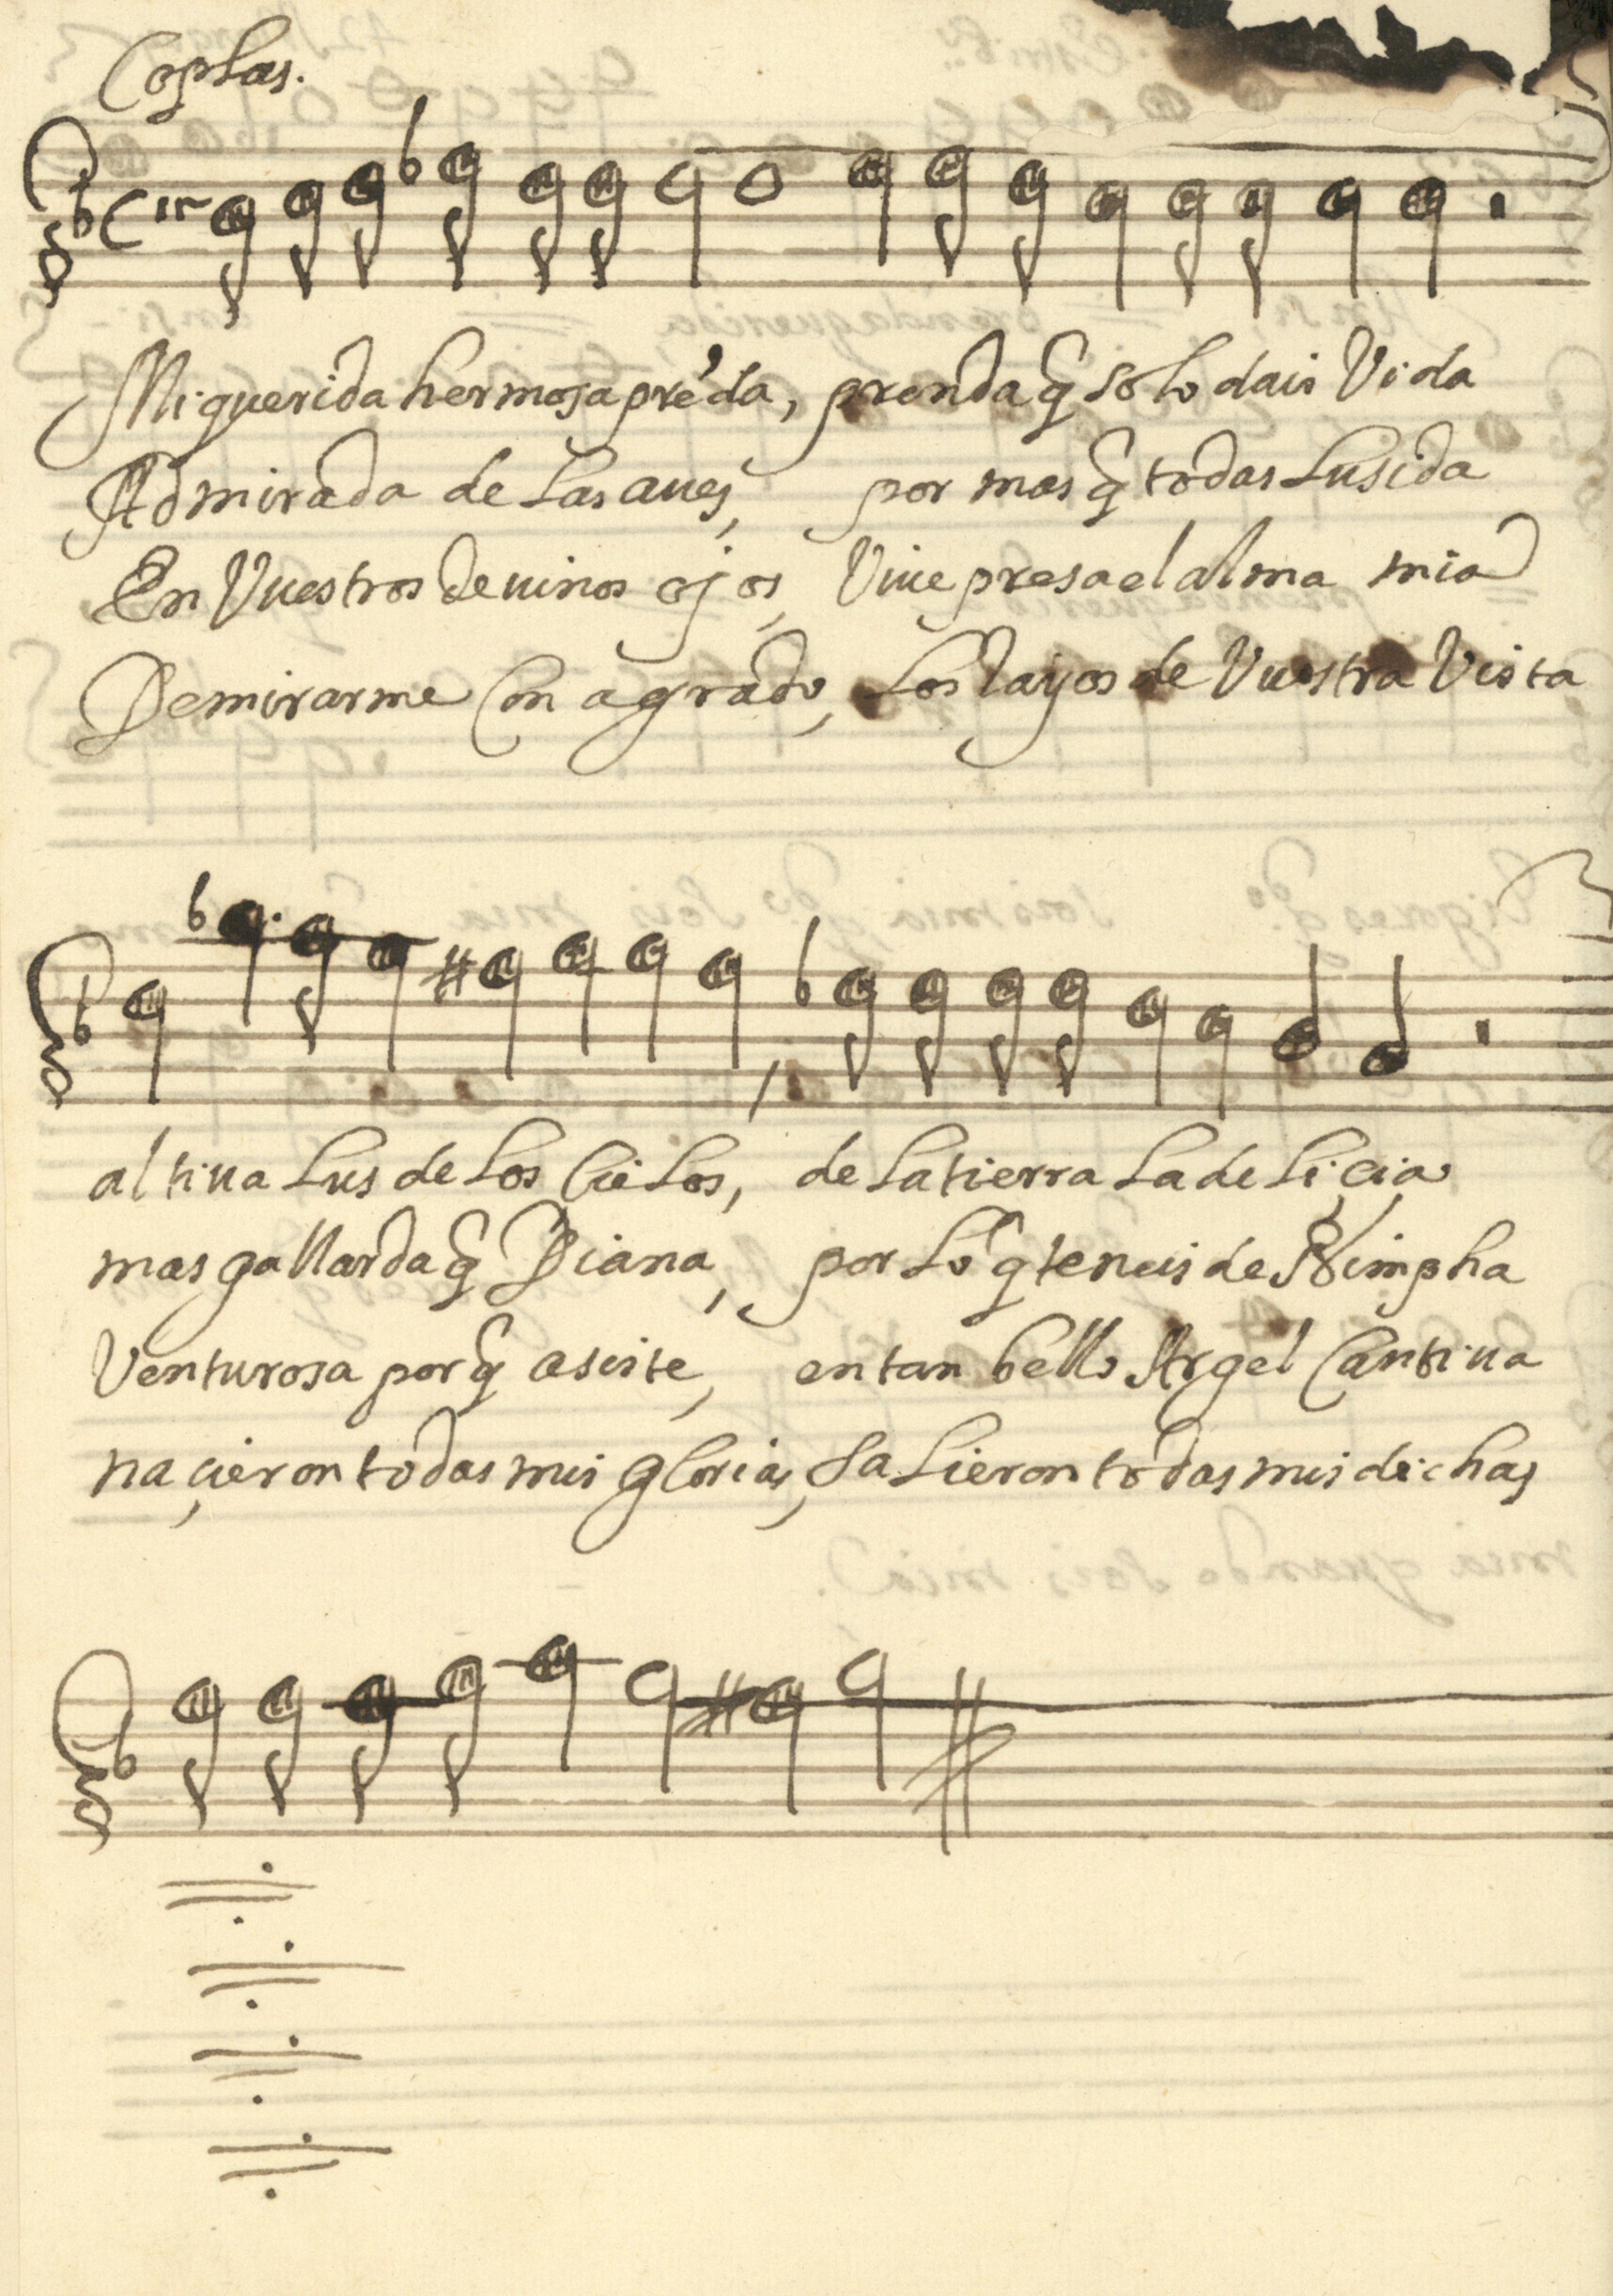 Coplas.
Mi querida hermosa prẽda, prenda q̃ solo dais Vida
Admirada de las aues, por mas q̃ todas lusida
En Vuestros deuinos ojos, Viue presa el alma mia
De mirarme Con agrado, los Rayos de Vuestra Vista
altiua lus de los Cielos, de la tierra la delicia
mas gallarda q̃ Diana, por lo q̃ teneis de Nimpha
Venturosa por q̃ asiste, en tan bello Argel Cautiua
naçieron todas mis glorias, salieron todas mis dichas